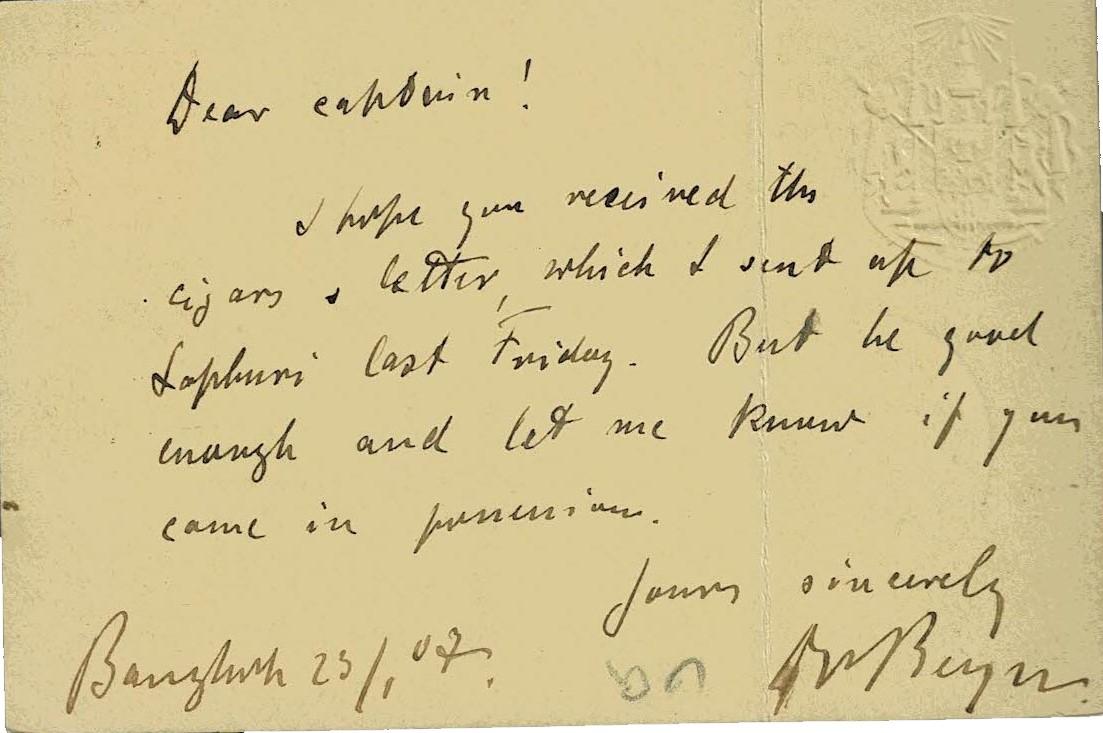 Dear captain!
I hope you received the
cigars & letter, which I sent up to
Lopburi last Friday. But be good
enough and let me know if you
came in possession.
Yours sincerely
Bangkok 23/1 07.
Dr